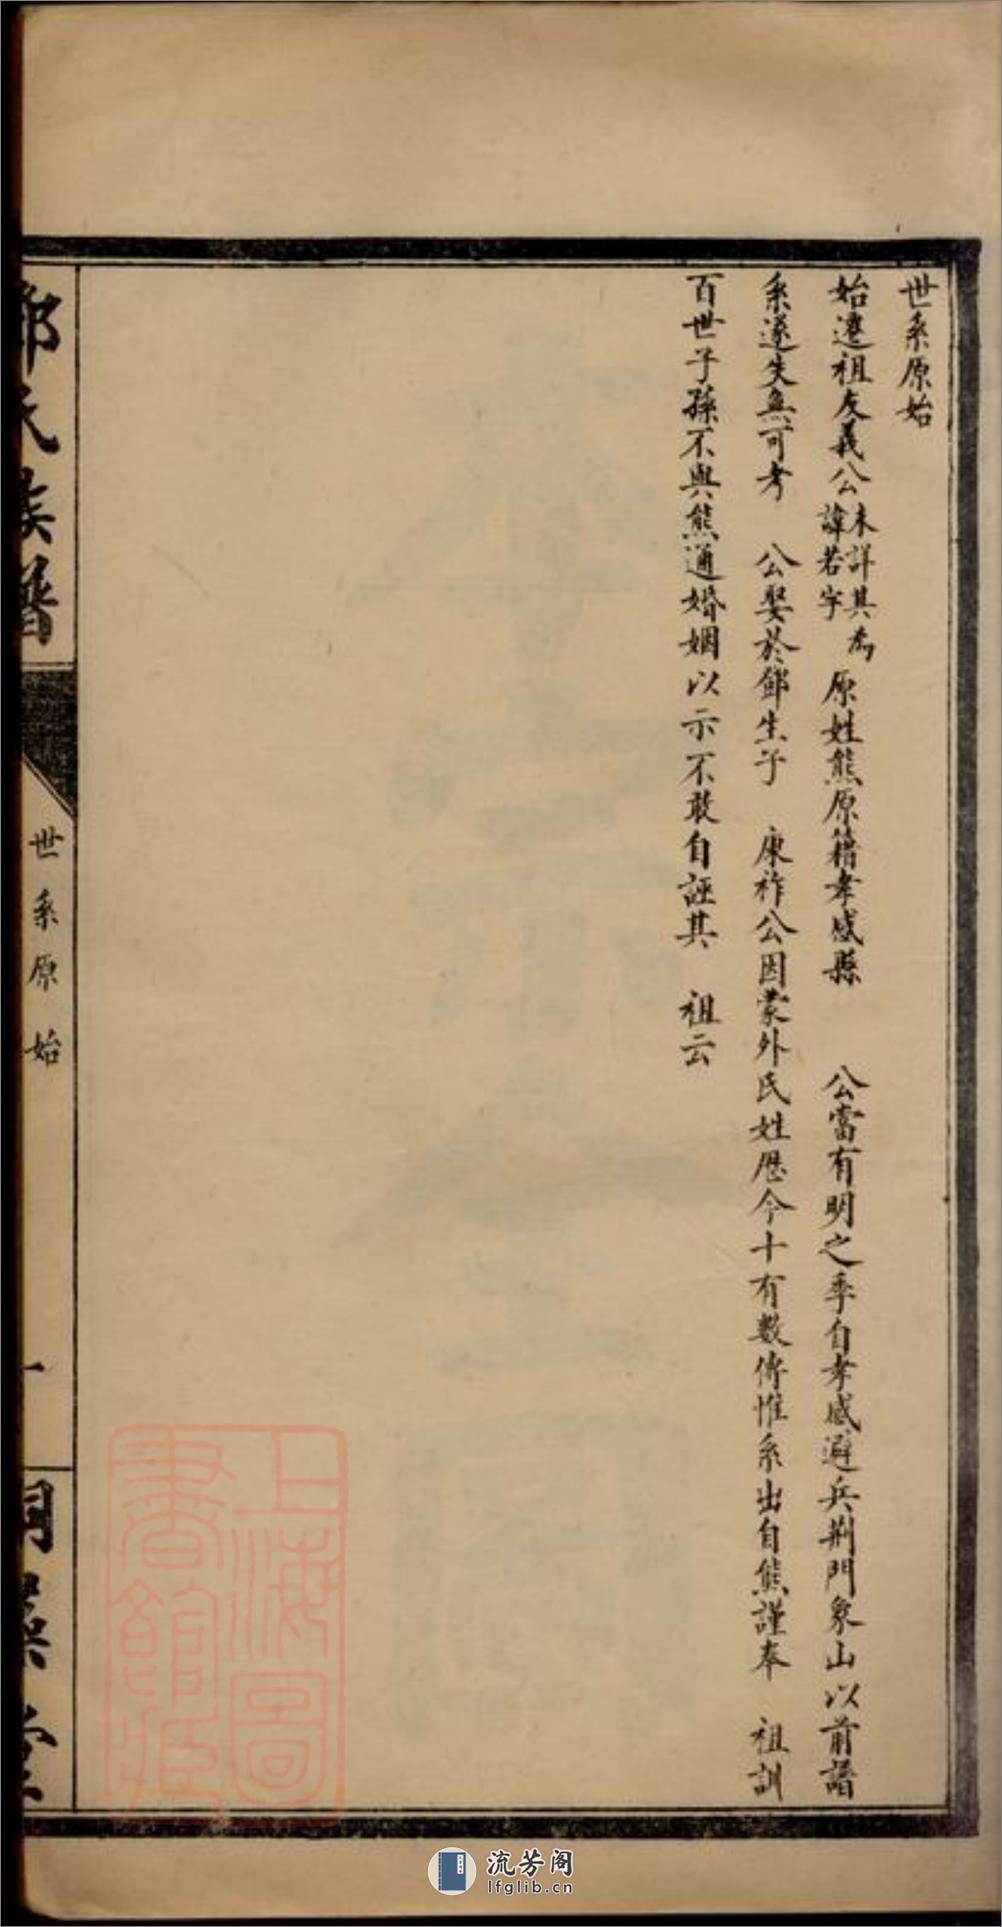 世系原始
始遷祖友義公未詳其為諱若字原姓熊原籍孝感縣 公當有明之季自孝感避兵荆門象山以前譜
系遂失無可考 公娶於鄧生子 康祚公因蒙外氏姓歷今十有數傳惟系出自熊謹奉 祖訓
百世子孫不與熊通婚姻以示不敢自誣其 祖云
鄧氏族譜
世系原始
一
堂
上海圖
書館藏
流芳阁
lfglib.cn